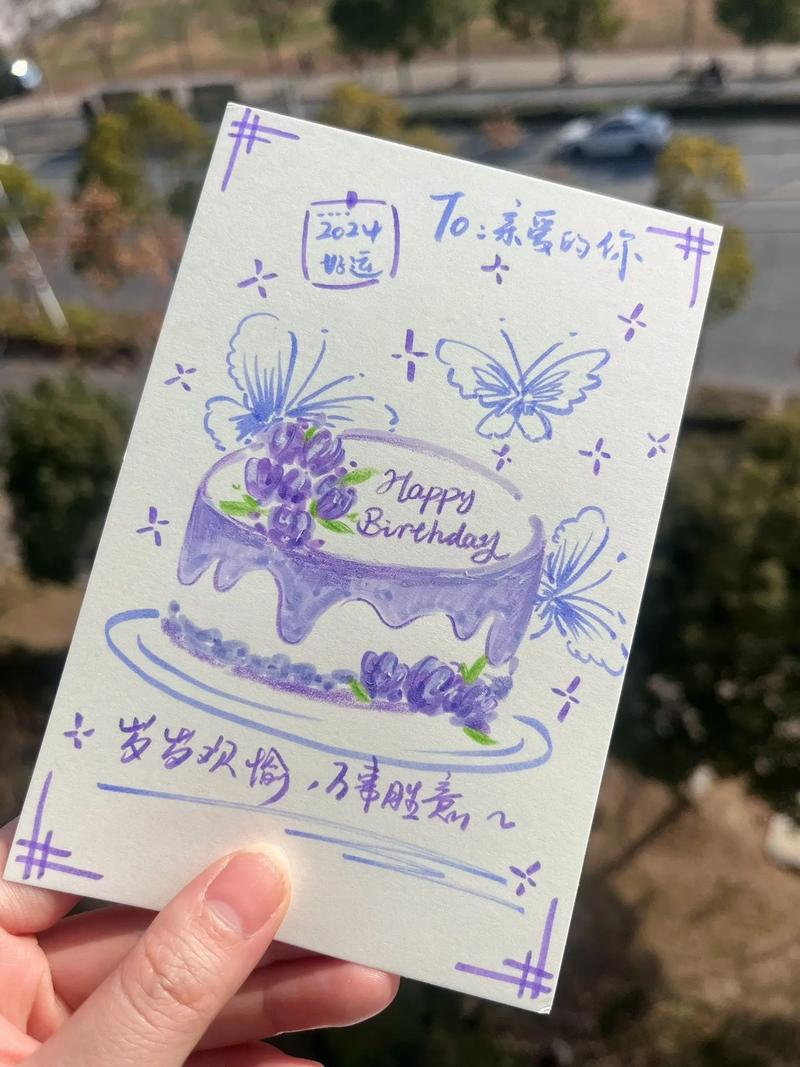 2024
好运
To:亲爱的你
Happy
Birthday
岁岁欢愉,万事胜意~